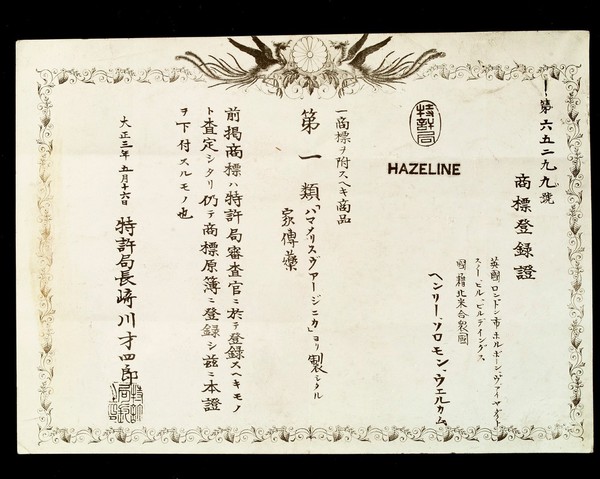 第六五二九九號
商標登錄證
英國ロンドン市ホルボーン、ヴァイヤダクト
スノー、ヒル、ビルディングス
國籍北米合衆國
ヘンリー、ソロモン、ウェルカム
特許局
HAZELINE
一商標ヲ附スヘキ商品
第一類「ハマメリス、ヴァージニカ」ヨリ製シタル
家傳藥
前掲商標ハ特許局審査官ニ於テ登録スヘキモノ
ト査定シタリ仍テ商標原簿ニ登録シ茲ニ本證
ヲ下付スルモノ也
大正三年五月十六日
特許局長崎川才四郎